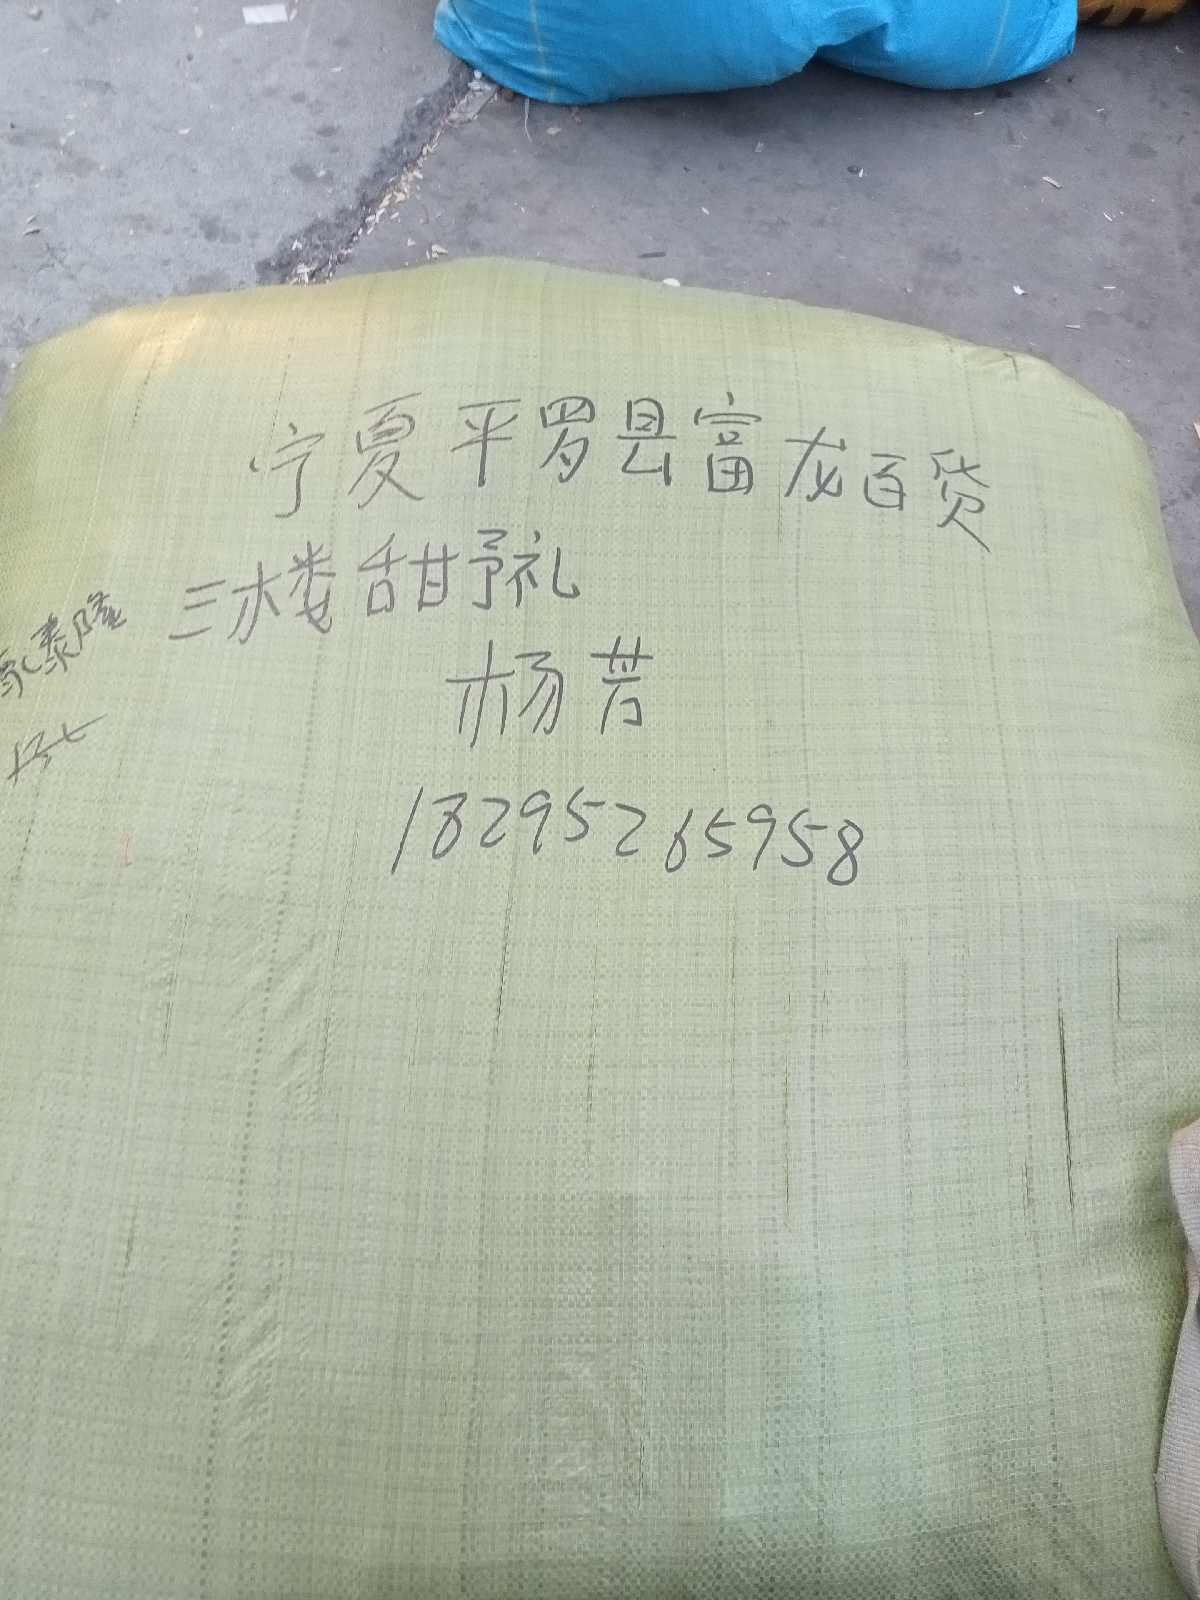 宁夏平罗县富龙百货
三楼甜予礼
杨芳
18295265958
永泰隆